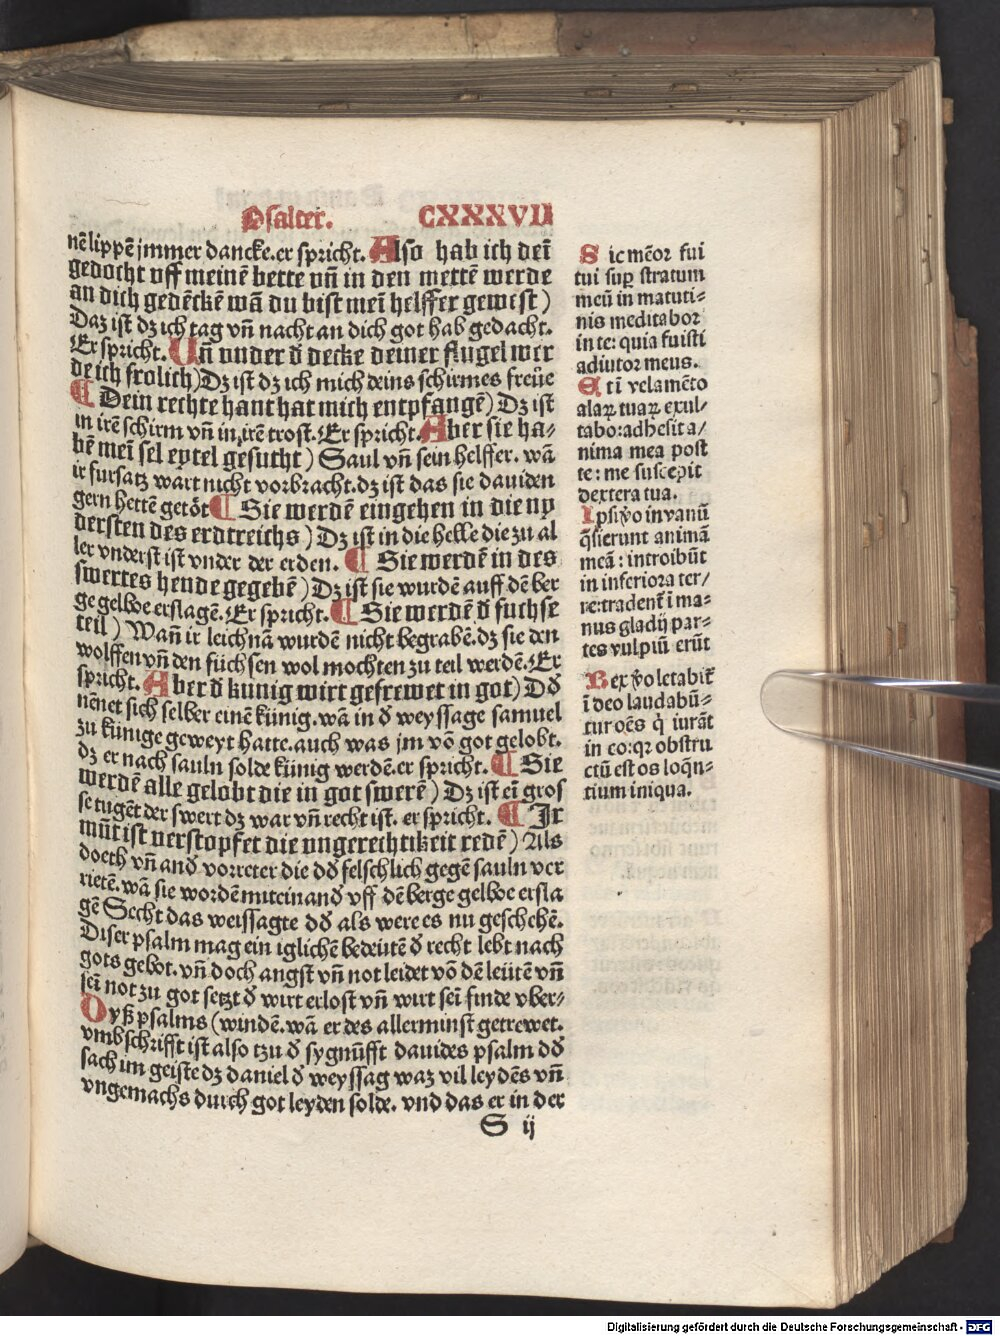 Psalter. CXXXVII
nē lippē jmmer dancke. er spricht. Also hab ich dei᷈
gedocht vff meinē bette vn̄ in den mettē werde
an dich gedēckē wā du bist mei᷈ helffer gewest)
Daz ist dz ich tag vn̄ nacht an dich got hab gedacht.
Er spricht. Un̄ vnder d̄ decke deiner flugel wir
de ich frolich) Dz ist dz ich mich deins schirmes freüe
¶ Dein rechte hant hat mich entpfangē) Dz ist
in irē schirm vn̄ in irē trost. Er spricht. Aber sie ha⸗
bē mei᷈ sel eytel gesucht) Saul vn̄ sein helffer. wā
ir fursatz wart nicht vorbracht. dz ist das sie dauiden
gern hettē getöt ¶ Sie werdē eingehen in die ny
dersten des erdtreichs) Dz ist in die helle die zu al
ler vnderst ist vnder der erden. ¶ Sie werdē in des
swertes hende gegebē) Dz ist sie wurdē auff dē ber
ge gelboe erslagē. Er spricht. ¶ Sie werdē d̄ fuchse
teil) Wan̄ ir leichnā wurdē nicht begrabē. dz sie den
wolffen vn̄ den füchsen wol mochten zu teil werdē. Er
spricht. Aber d̄ kunig wirt gefrewet in got) Dd̄
nēnet sich selber einē künig. wā in d̄ weyssage samuel
zu künige geweyt hatte. auch was jm vō got gelobt.
dz er nach sauln solde künig werdē. er spricht. ¶ Sie
werdē alle gelobt die in got swerē) Dz ist ei᷈ gros
se tugēt der swert dz war vn̄ recht ist. er spricht. ¶ Ir
mūt ist verstopfet die vngerechtikeit redē) Als
doeth vn̄ and̄ vorreter die dd̄ felschlich gegē sauln ver
rietē. wā sie wordē miteinand̄ vff dē berge gelboe ersla
gē Secht das weissagte dd̄ als were es nu geschehē.
Diser psalm mag ein iglichē bedeutē d̄ recht lebt nach
gots gebot. vn̄ doch angst vn̄ not leidet vō dē leütē vn̄
sei᷈ not zu got setzt d̄ wirt erlost vn̄ wirt sei᷈ finde vber⸗
Dyß psalms (windē. wā er des allerminst getrewet.
vmbschrifft ist also tzu d̄ sygnūfft dauides psalm dd̄
sach im geiste dz daniel d̄ weyssag waz vil leydēs vn̄
vngemachs durch got leyden solde. vnd das er in der
S ij
Sic mēor fui
tui suꝑ stratum
meū in matuti⸗
nis meditabor
in te: quia fuisti
adiutor meus.
Et i᷈ velamēto
alaꝝ tuaꝝ exul⸗
tabo: adhesit a/
nima mea post
te: me suscepit
dextera tua.
Ipsi v̊o in vanū
q̄sierunt animā
meā: introibūt
in inferiora ter/
re: tradent᷑ i᷈ ma⸗
nus gladij par⸗
tes vulpiū erūt
Rex v̊o letabit᷑
i᷈ deo laudabū⸗
tur oēs q̇ iurāt
in eo: qꝛ obstru
ctū est os loqn̄⸗
tium iniqua.
Digitalisierung gefördert durch die Deutsche Forschungsgemeinschaft - DFG